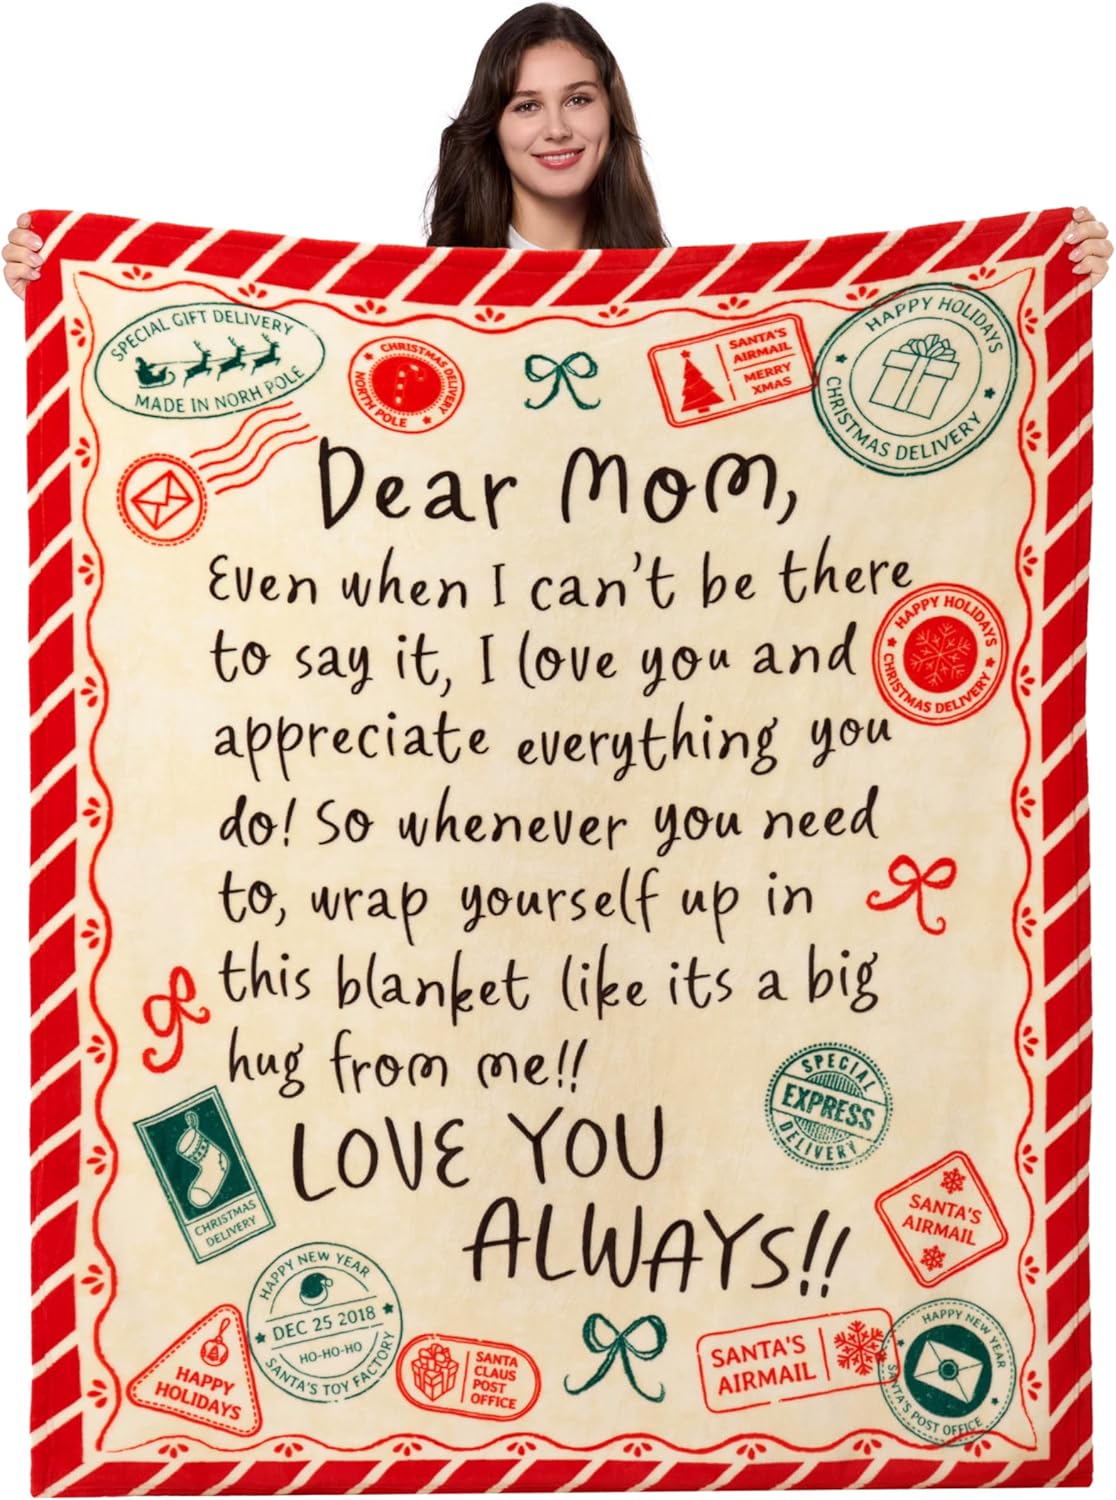 SPECIAL GIFT DELIVERY
MADE IN NORH POLE
CHRISTMAS DELIVERY
NORTH POLE
SANTA'S
AIRMAIL
MERRY
XMAS
HAPPY HOLIDAYS
CHRISTMAS DELIVERY
Dear Mom,
Even when I can't be there
to say it, I love you and
appreciate everything you
do! So whenever you need
to, wrap yourself up in
this blanket like its a big
hug from me!!
LOVE YOU
ALWAYS!!
HAPPY HOLIDAYS
CHRISTMAS DELIVERY
SPECIAL
EXPRESS
DELIVERY
CHRISTMAS
DELIVERY
SANTA'S
AIRMAIL
HAPPY NEW YEAR
DEC 25 2018
HO-HO-HO
SANTA'S TOY FACTORY
HAPPY
HOLIDAYS
SANTA
CLAUS
POST
OFFICE
SANTA'S
AIRMAIL
HAPPY NEW YEAR
SANTA'S POST OFFICE